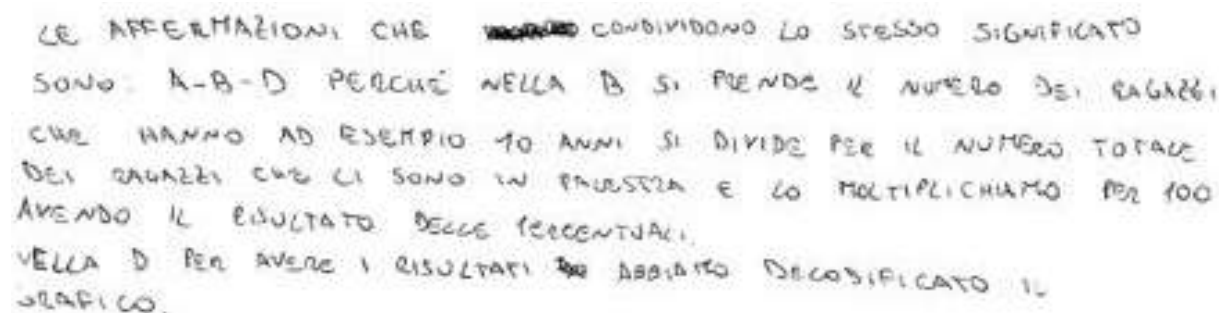 LE AFFERMAZIONI CHE CONDIVIDONO LO STESSO SIGNIFICATO
SONO: A-B-D PERCHÉ NELLA B SI PRENDE IL NUMERO DEI RAGAZZI
CHE HANNO AD ESEMPIO 10 ANNI SI DIVIDE PER IL NUMERO TOTALE
DEI RAGAZZI CHE CI SONO IN PALESTRA E LO MOLTIPLICHIAMO PER 100
AVENDO IL RISULTATO DELLE PERCENTUALI.
NELLA D PER AVERE I RISULTATI ABBIAMO DECODIFICATO IL
GRAFICO.